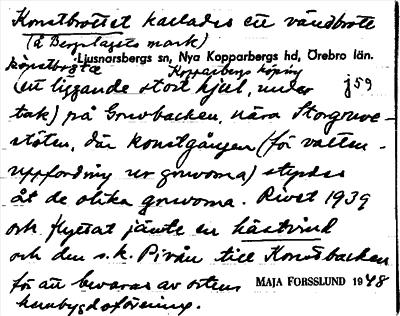 Konstbrottet kallades ett vändbrott
(å Bergslagets mark)
Ljusnarsbergs sn, Nya Kopparbergs hd, Örebro län.
Kopparbergs köping
(ett liggande stort hjul, under j 59
tak) på Gruvbacken, nära Storgruve-
stöten, där konstgången (för vatten-
uppfordring ur gruvorna) styrdes
åt de olika gruvorna. Rivet 1939
och flyttat jämte en hästvind
och den s.k. Pivån till Konstbacken
för att bevaras av ortens MAJA FORSSLUND 1948
hembygdsförening.